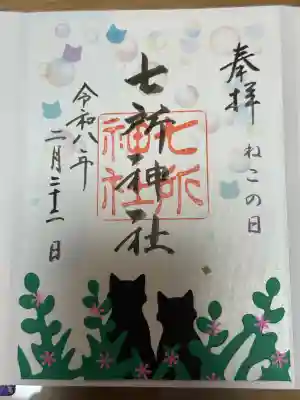 奉拝
ねこの日
七所神社
七所神社
令和八年
二月二十二日